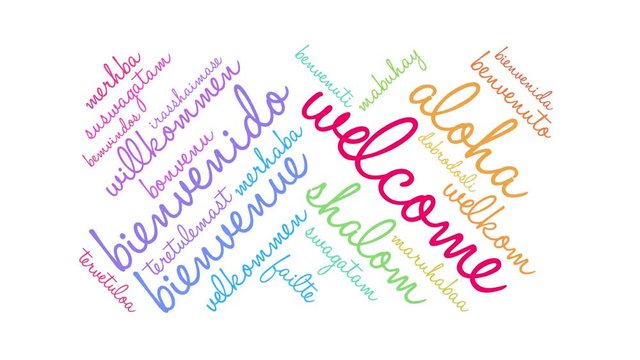 merhba
suswagatam
benvindos
willkommen
irasshaimase
bonvenu
bienvenido
teretulemast
merhaba
bienvenue
tervetuloa
velkommen
failte
benvenuti
mabuhay
welcome
aloha
bienvenida
benvenuto
dobrodosli
welkom
shalom
swagatam
maruhabaa